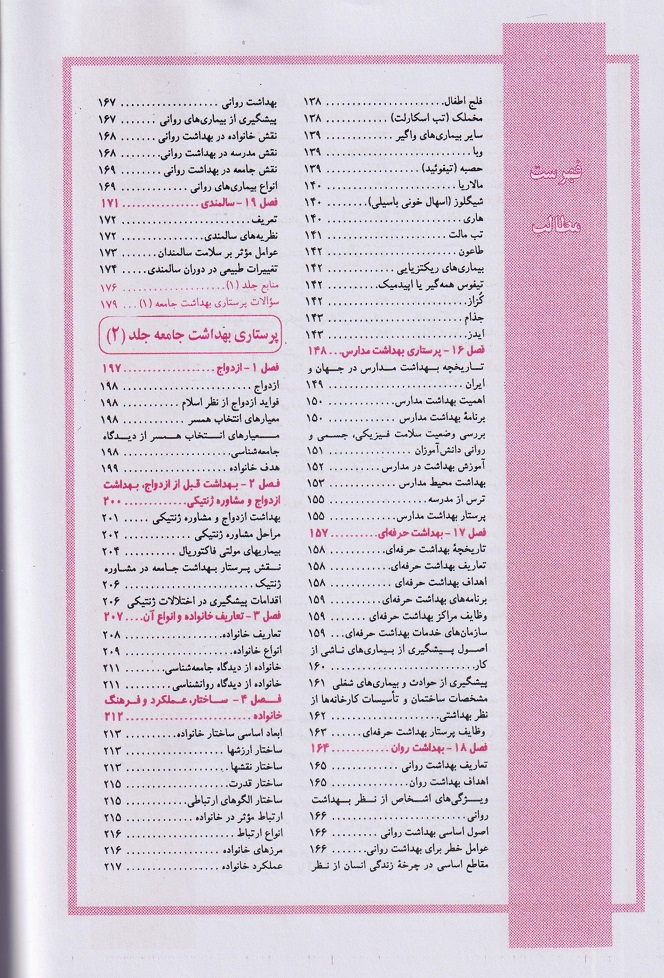 فهرست
مطالب
فلج اطفال ........................ ۱۳۸
مخملک (تب اسکارلت) ........... ۱۳۸
سایر بیماری‌های واگیر ........... ۱۳۹
وبا .............................. ۱۳۹
حصبه (تیفوئید) .................. ۱۳۹
مالاریا .......................... ۱۴۰
شیگلوز (اسهال خونی باسیلی) ...... ۱۴۰
هاری ............................ ۱۴۰
تب مالت ......................... ۱۴۱
طاعون ........................... ۱۴۲
بیماری‌های ریکتزیایی ............. ۱۴۲
تیفوس همه‌گیر یا اپیدمیک ......... ۱۴۲
کُزاز ............................ ۱۴۲
جذام ............................ ۱۴۳
ایدز ............................. ۱۴۳
فصل ۱۶ - پرستاری بهداشت مدارس ... ۱۴۸
تاریخچه بهداشت مدارس در جهان و
ایران ............................ ۱۴۹
اهمیت بهداشت مدارس ............ ۱۵۰
برنامهٔ بهداشت مدارس ............ ۱۵۰
بررسی وضعیت سلامت فیزیکی، جسمی و
روانی دانش‌آموزان ................ ۱۵۱
آموزش بهداشت در مدارس ......... ۱۵۲
بهداشت محیط مدارس ............. ۱۵۳
ترس از مدرسه ................... ۱۵۵
پرستار بهداشت مدارس ............ ۱۵۵
فصل ۱۷ - بهداشت حرفه‌ای .......... ۱۵۷
تاریخچهٔ بهداشت حرفه‌ای .......... ۱۵۸
تعاریف بهداشت حرفه‌ای ........... ۱۵۸
اهداف بهداشت حرفه‌ای ........... ۱۵۸
برنامه‌های بهداشت حرفه‌ای ......... ۱۵۹
وظایف مراکز بهداشت حرفه‌ای ...... ۱۵۹
سازمان‌های خدمات بهداشت حرفه‌ای ... ۱۵۹
اصول پیشگیری از بیماری‌های ناشی از
کار .............................. ۱۶۰
پیشگیری از حوادث و بیماری‌های شغلی ۱۶۱
مشخصات ساختمان و تأسیسات کارخانه‌ها از
نظر بهداشتی ..................... ۱۶۲
وظایف پرستار بهداشت حرفه‌ای ...... ۱۶۳
فصل ۱۸ - بهداشت روان ............ ۱۶۴
تعاریف بهداشت روانی ............. ۱۶۵
اهداف بهداشت روان .............. ۱۶۵
ویژگی‌های اشخاص از نظر بهداشت
روانی ............................ ۱۶۶
اصول اساسی بهداشت روانی ........ ۱۶۶
عوامل خطر برای بهداشت روانی ...... ۱۶۶
مقاطع اساسی در چرخهٔ زندگی انسان از نظر
بهداشت روانی .................... ۱۶۷
پیشگیری از بیماری‌های روانی ....... ۱۶۷
نقش خانواده در بهداشت روانی ...... ۱۶۸
نقش مدرسه در بهداشت روانی ....... ۱۶۸
نقش جامعه در بهداشت روانی ....... ۱۶۹
انواع بیماری‌های روانی ............. ۱۶۹
فصل ۱۹ - سالمندی ................ ۱۷۱
تعریف ........................... ۱۷۲
نظریه‌های سالمندی ................ ۱۷۲
عوامل مؤثر بر سلامت سالمندان ..... ۱۷۳
تغییرات طبیعی در دوران سالمندی .... ۱۷۴
منابع جلد (۱) .................... ۱۷۶
سؤالات پرستاری بهداشت جامعه (۱) ... ۱۷۹
پرستاری بهداشت جامعه جلد (۲)
فصل ۱ - ازدواج ................... ۱۹۷
ازدواج .......................... ۱۹۸
فواید ازدواج از نظر اسلام .......... ۱۹۸
معیارهای انتخاب همسر ........... ۱۹۸
معیارهای انتخاب همسر از دیدگاه
جامعه‌شناسی ..................... ۱۹۸
هدف خانواده .................... ۱۹۹
فصل ۲ - بهداشت قبل از ازدواج، بهداشت
ازدواج و مشاوره ژنتیکی ........... ۲۰۰
بهداشت ازدواج و مشاوره ژنتیکی ..... ۲۰۱
مراحل مشاوره ژنتیکی ............. ۲۰۲
بیماریهای مولتی فاکتوریال ......... ۲۰۴
نقش پرستار بهداشت جامعه در مشاوره
ژنتیک ........................... ۲۰۶
اقدامات پیشگیری در اختلالات ژنتیکی ۲۰۶
فصل ۳ - تعاریف خانواده و انواع آن .... ۲۰۷
تعاریف خانواده ................... ۲۰۸
انواع خانواده ..................... ۲۰۹
خانواده از دیدگاه جامعه‌شناسی ...... ۲۱۱
خانواده از دیدگاه روانشناسی ........ ۲۱۱
فصل ۴ - ساختار، عملکرد و فرهنگ
خانواده .......................... ۲۱۲
ابعاد اساسی ساختار خانواده ........ ۲۱۳
ساختار ارزشها .................... ۲۱۳
ساختار نقشها .................... ۲۱۳
ساختار قدرت .................... ۲۱۵
ساختار الگوهای ارتباطی ........... ۲۱۵
ارتباط مؤثر در خانواده ............. ۲۱۵
انواع ارتباط ...................... ۲۱۶
مرزهای خانواده ................... ۲۱۶
عملکرد خانواده ................... ۲۱۷